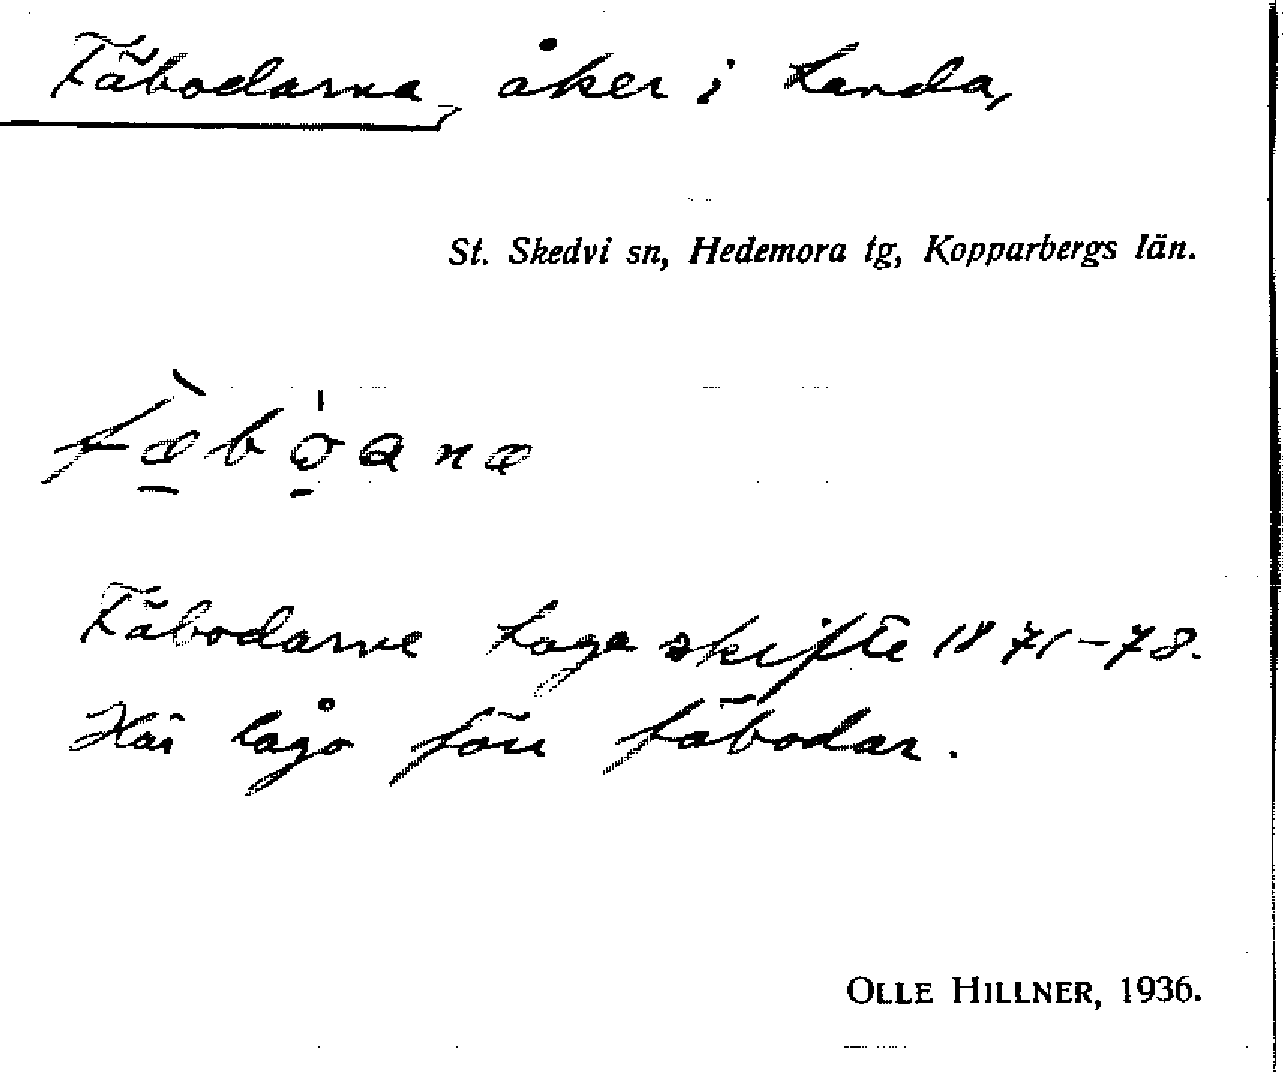 Fäbodarna, åker i Landa,
St. Skedvi sn, Hedemora tg, Kopparbergs län.
fæ̠̀bo̠̍ɑnæ
Fäbodarne Laga skifte 1871-78.
Här lågo förr fäbodar.
OLLE HILLNER, 1936.